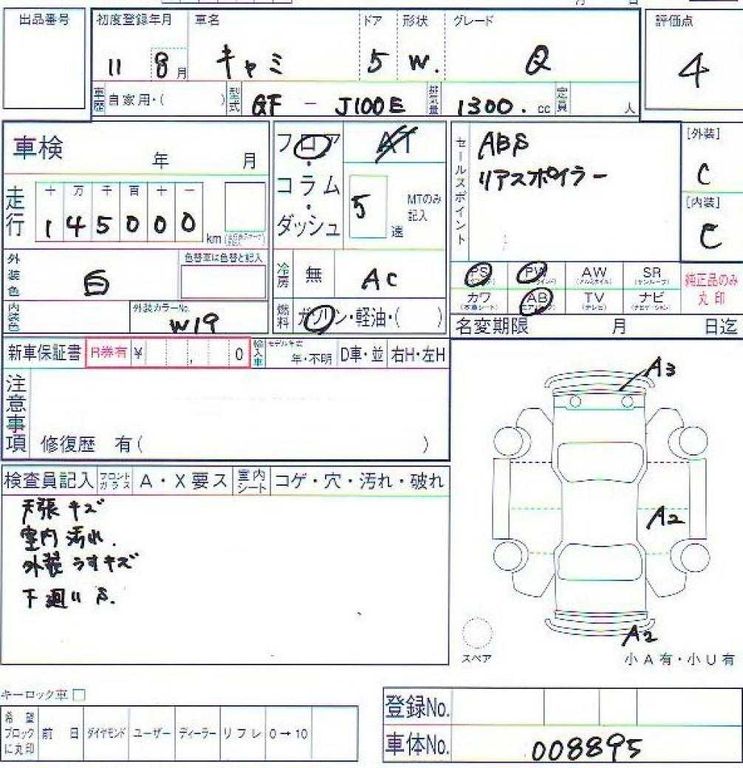 出品番号 初度登録年月 車名 ドア 形状 グレード 評価点
11 8月 キャミ 5 W. Q 4
車歴 自家用・( ) 型式 GF - J100E 排気量 1300. cc 定員 人
車検 年 月
フロア・コラム・ダッシュ AT
5速 MTのみ記入
セールスポイント ABS
リアスポイラー
[外装] C
[内装] C
走行 十 万 千 百 十 一
145000 km
外装色 白 色替車は色替と記入
内装色 外装カラーNo. W19
冷房 無 AC
燃料 ガソリン・軽油・( )
PS PW AW SR
カワ AB TV ナビ
純正品のみ丸印
名変期限 月 日迄
新車保証書 R券有 ¥ , 0 輸入車 モデル年式 年・不明 D車・並 右H・左H
注意事項 修復歴 有( )
検査員記入 フロントガラス A・X要ス 室内シート コゲ・穴・汚れ・破れ
天張キズ
室内汚れ.
外装うすキズ
下廻り S.
A3
A2
A2
スペア 小A有・小U有
キーロック車
希望ブロックに丸印 前日 ダイヤモンド ユーザー ディーラー リフレ 0→10
登録No.
車体No. 008895